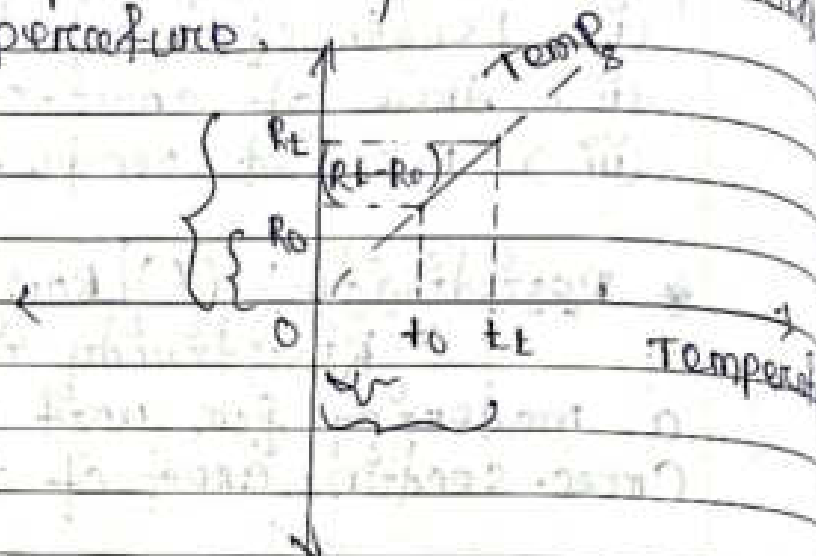 perature.
Temp
Rt
(Rt-R0)
R0
0 t0 tt
Temperat